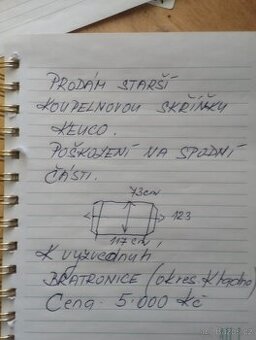 PRODÁM STARŠÍ
KOUPELNOVOU SKŘÍŇKU
KEUCO.
POŠKOZENÍ NA SPODNÍ
ČÁSTI.
73cm
123
117 cm
K vyzvednutí
BRATRONICE (okres Kladno)
Cena: 5.000 Kč